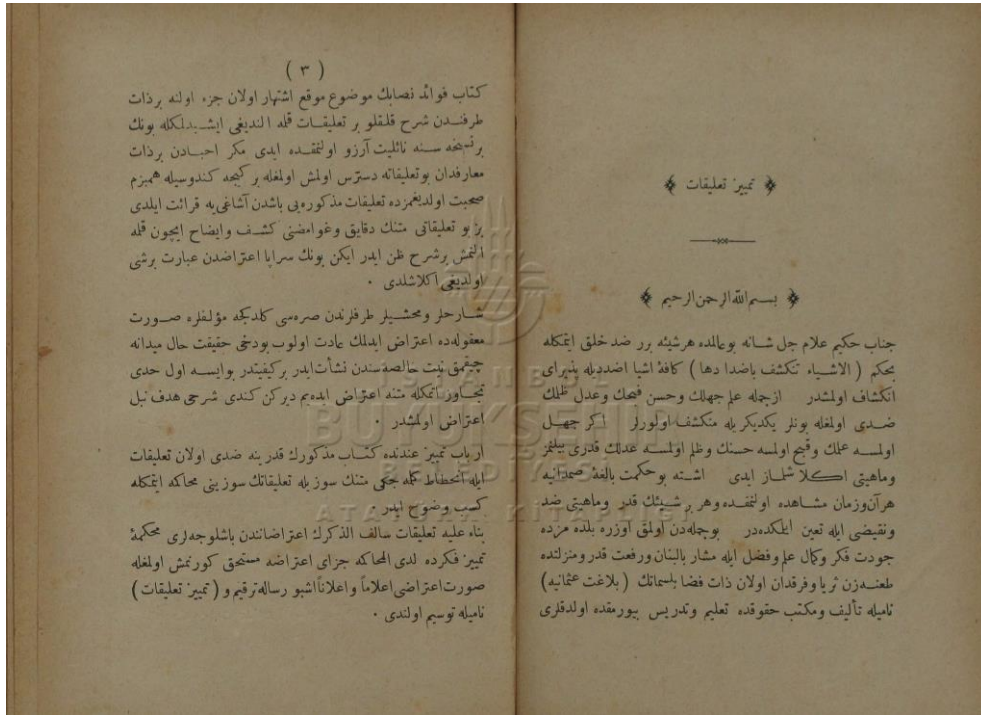 ﴿ تمييز تعليقات ﴾
﴿ بسم الله الرحمن الرحيم ﴾
جناب حكيم علام جل شانه بوعالمده هرشيئه برر ضد خلق ايتمكله
بحكم ( الاشياء تنكشف باضدادها ) كافۀ اشيا اضدديله پذيراى
انكشاف اولمشدر ازجمله علم جهلك وحسن قبحك وعدل ظلمك
ضدى اولمغله بونلر يكديكريله منكشف اولورلر اكر جهل
اولمسه علمك وقبيح اولمسه حسنك وظلم اولمسه عدلك قدرى بيلنمز
وماهيتى اكلاشلماز ايدى اشته بو حكمت بالغۀ صمدانيه
هرآن وزمان مشاهده اولنمقده وهر برشيئك قدر وماهيتى ضد
ونقيضى ايله تعين ايلكده در بوجمله دن اولمق اوزره بلده مزده
جودت فكر وكمال علم وفضل ايله مشار بالبنان ورفعت قدر ومنزلتده
طعنه زن ثريا وفرقدان اولان ذات فضائلسماتك ( بلاغت عثمانيه )
ناميله تأليف ومكتب حقوقده تعليم وتدريس بيورمقده اولدقلرى
( ٣ )
كتاب فوائد نصابك موضوع موقع اشتهار اولان جزء اولنه برذات
طرفندن شرح قلقلو بر تعليقات قلمه النديغى ايشيدلمكله بونك
برنسخه سنه نائليت آرزو اولنمقده ايدى مكر احبادن برذات
معارفدان بوتعليقاته دسترس اولمش اولمغله بر كيجه كندوسيله همبزم
صحبت اولديغمزده تعليقات مذكوره يى باشدن آشاغى يه قرائت ايلدى
بز بو تعليقاتى متنك دقايق وغوامضنى كشف وايضاح ايچون قلمه
النمش برشرح ظن ايدر ايكن بونك سراپا اعتراضدن عبارت برشى
اولديغى اكلاشلدى ٠
شارحلر ومحشيلر طرفلرندن صره سى كلدكجه مؤلفلره صورت
معقوله ده اعتراض ايدلمك عادت اولوب بودخى حقيقت حال ميدانه
چيقمق نيت خالصه سندن نشأت ايدر بركيفيتدر بوايسه اول حدى
تجاوز ايتمكله متنه اعتراض ايده يم ديركن كندى شرحى هدف نبل
اعتراض اولمشدر ٠
ارباب تمييز عندنده كتاب مذكورك قدرينه ضدى اولان تعليقات
ايله انحطاط كلميه جكى متنك سوزيله تعليقاتك سوزينى محاكمه ايتمكله
كسب وضوح ايدر
بناء عليه تعليقات سالف الذكرك اعتراضانندن باشلوجه لرى محكمۀ
تمييز فكرده لدى المحاكمه جزاى اعتراضه مستحق كورنمش اولمغله
صورت اعتراضى اعلاماً واعلاناً اشبو رساله ترقيم و ( تمييز تعليقات )
ناميله توسيم اولندى ٠
ISTANBUL
BÜYÜKŞEHİR
BELEDİYESİ
ATATÜRK KİTAPLIĞI